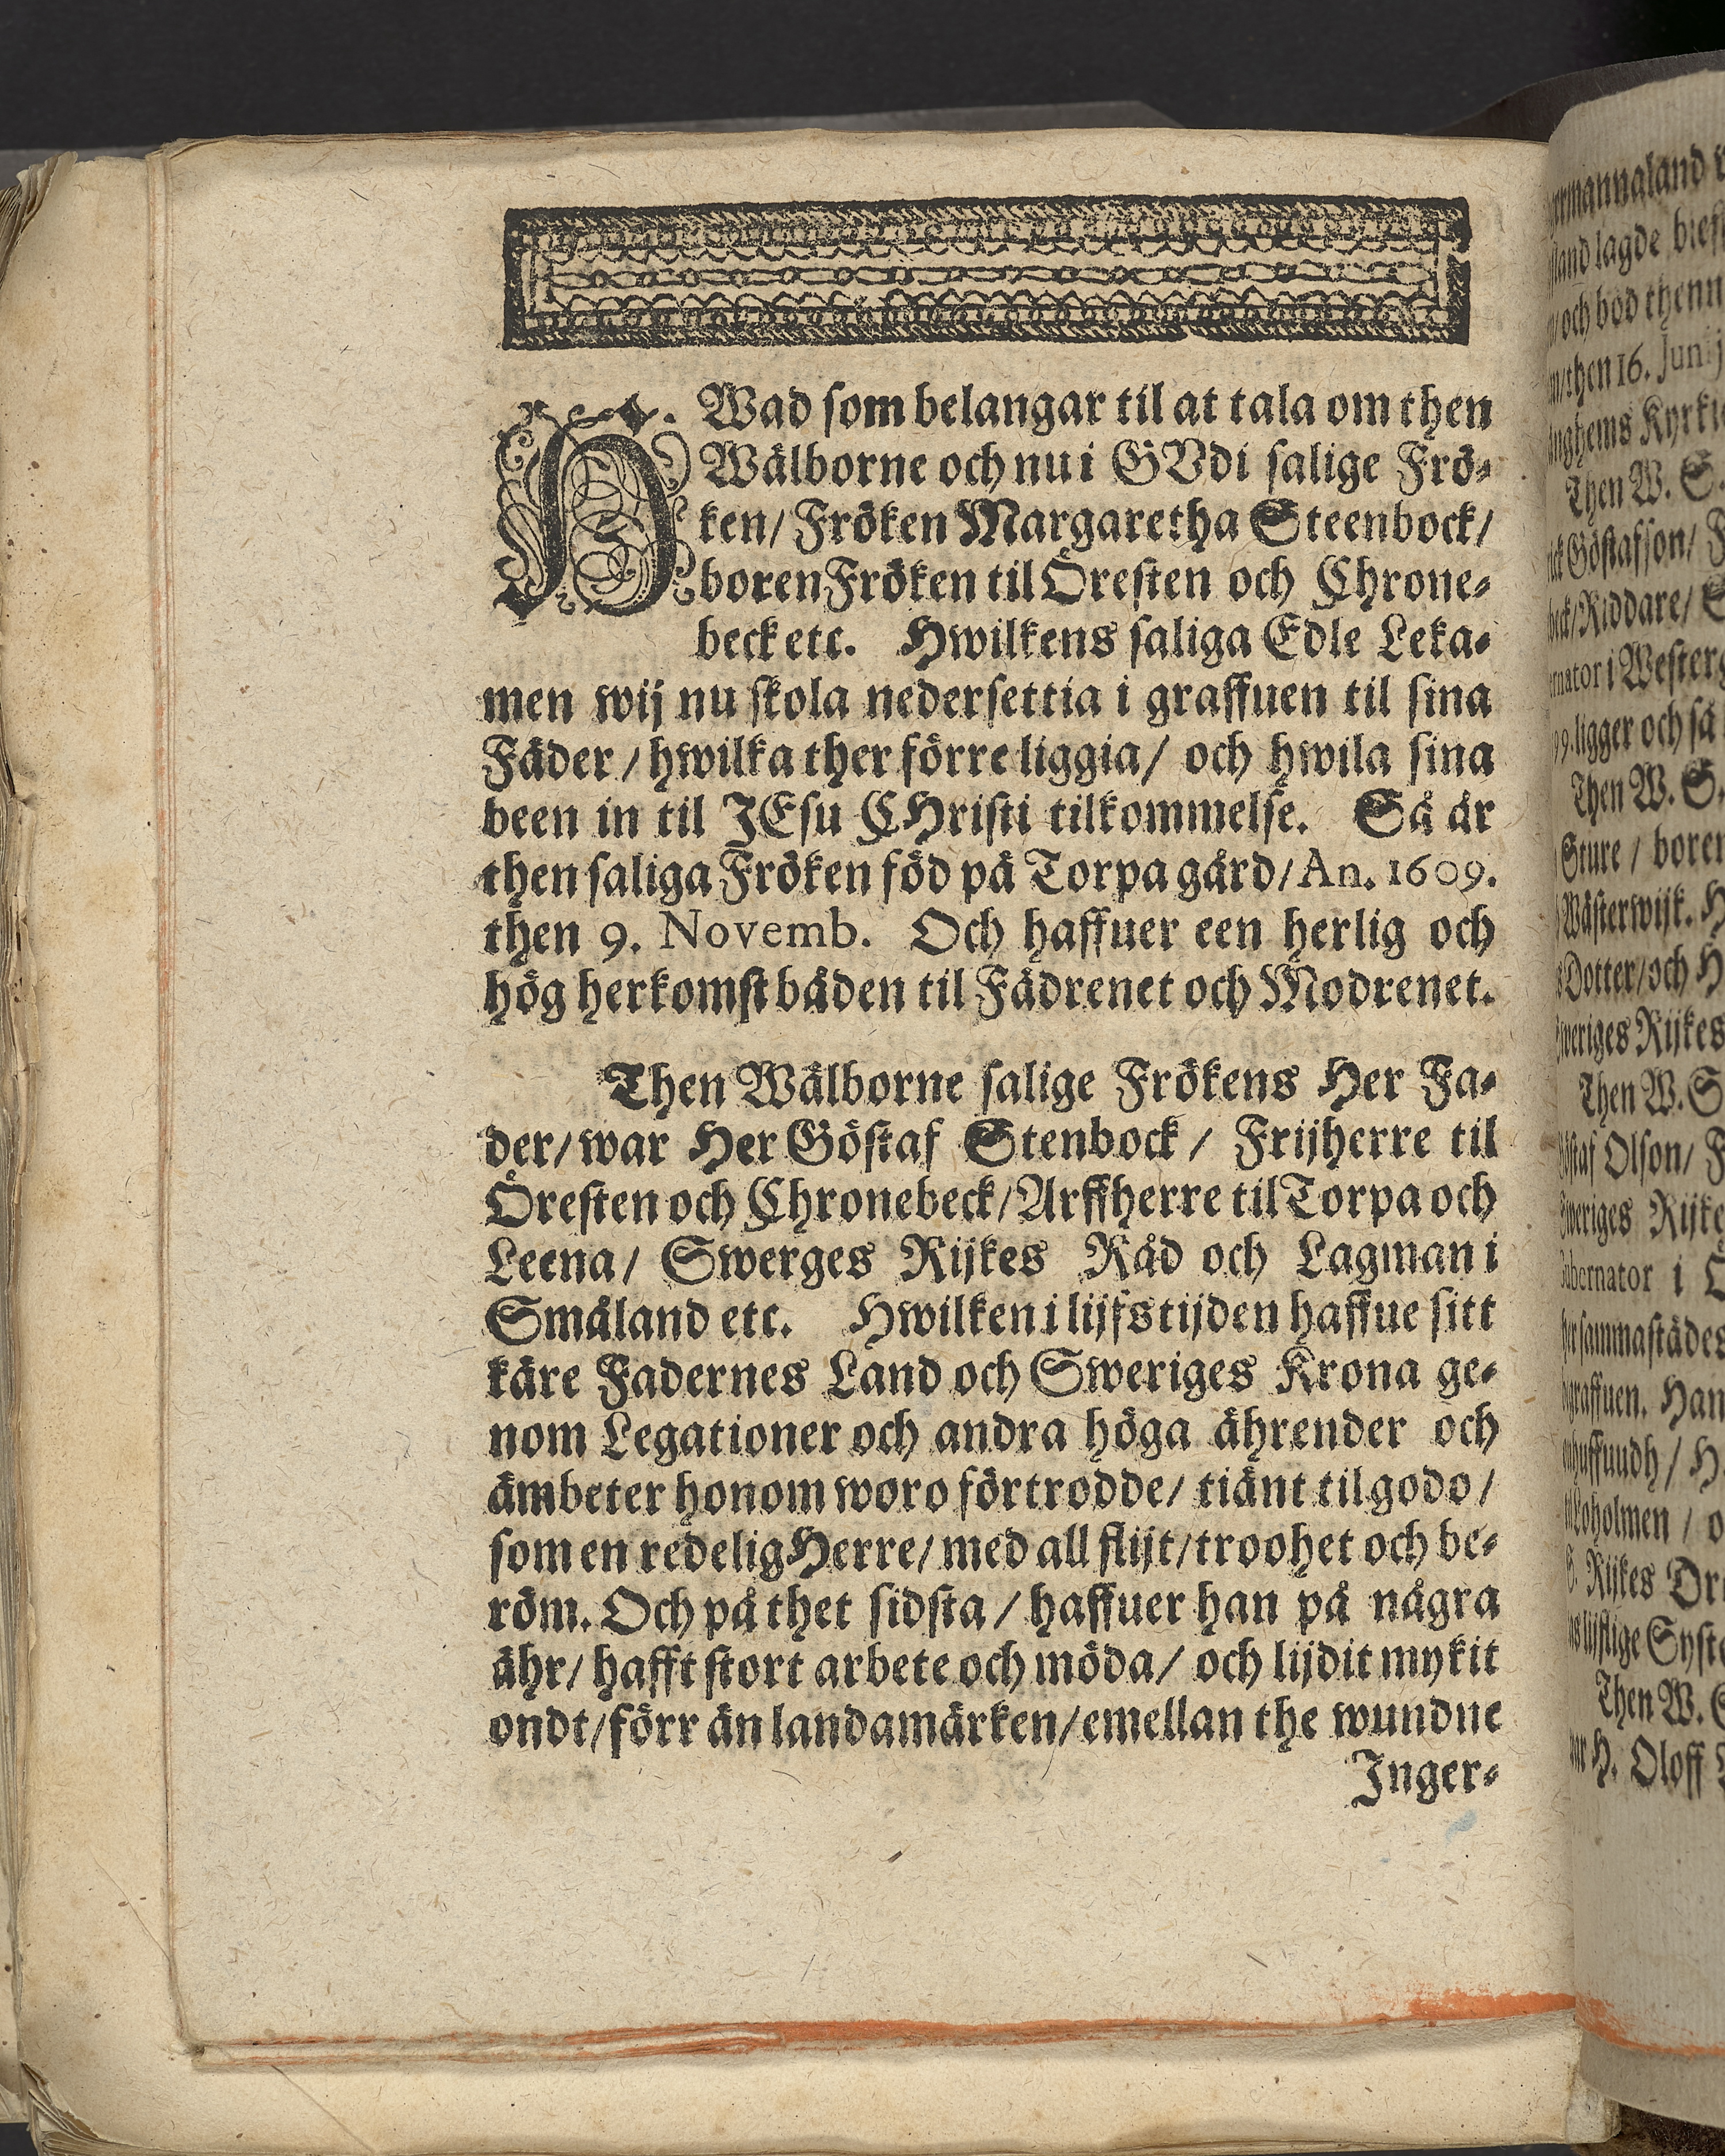 HWad som belangar til at tala om then
Wälborne och nu i GVdi salige Frö-
ken/ Fröken Margaretha Steenbock/
boren Fröken til Öresten och Chrone-
beck etc. Hwilkens saliga Edle Leka-
men wij nu skola nedersettia i graffuen til sina
Fäder/ hwilka ther förre liggia/ och hwila sina
been in til JEsu CHristi tilkommelse. Så är
then saliga Fröken föd på Torpa gård/ An. 1609.
then 9. Novemb. Och haffuer een herlig och
hög herkomst båden til Fädrenet och Modrenet.
Then Wälborne salige Frökens Her Fa-
der/ war Her Göstaf Stenbock/ Frijherre til
Öresten och Chronebeck/ Arffherre til Torpa och
Leena/ Swerges Rijkes Råd och Lagman i
Småland etc. Hwilken i lijfstijden haffue sitt
käre Fadernes Land och Sweriges Krona ge-
nom Legationer och andra höga ährender och
ämbeter honom woro förtrodde/ tiänt til godo/
som en redelig Herre/ med all flijt/ troohet och be-
röm. Och på thet sidsta/ haffuer han på några
ähr/ hafft stort arbete och möda/ och lijdit mykit
ondt/ förr än landamärken/ emellan the wundne
Inger-
land lagde
och bod
then 16. Junij
Kyrki
Then W. S.
Göstafson/ F
Riddare/ S
i Westerg
ligger och så
Then W. S.
Sture / boren
Wästerwijk. H
Dotter/ och H
Rijkes
Then W. S
Olson/ F
Rijke
i O
sammastädes
graffuen. Han
/ H.
holmen / o
Rijkes Dro
Syste
Then W. S
H. Oloff